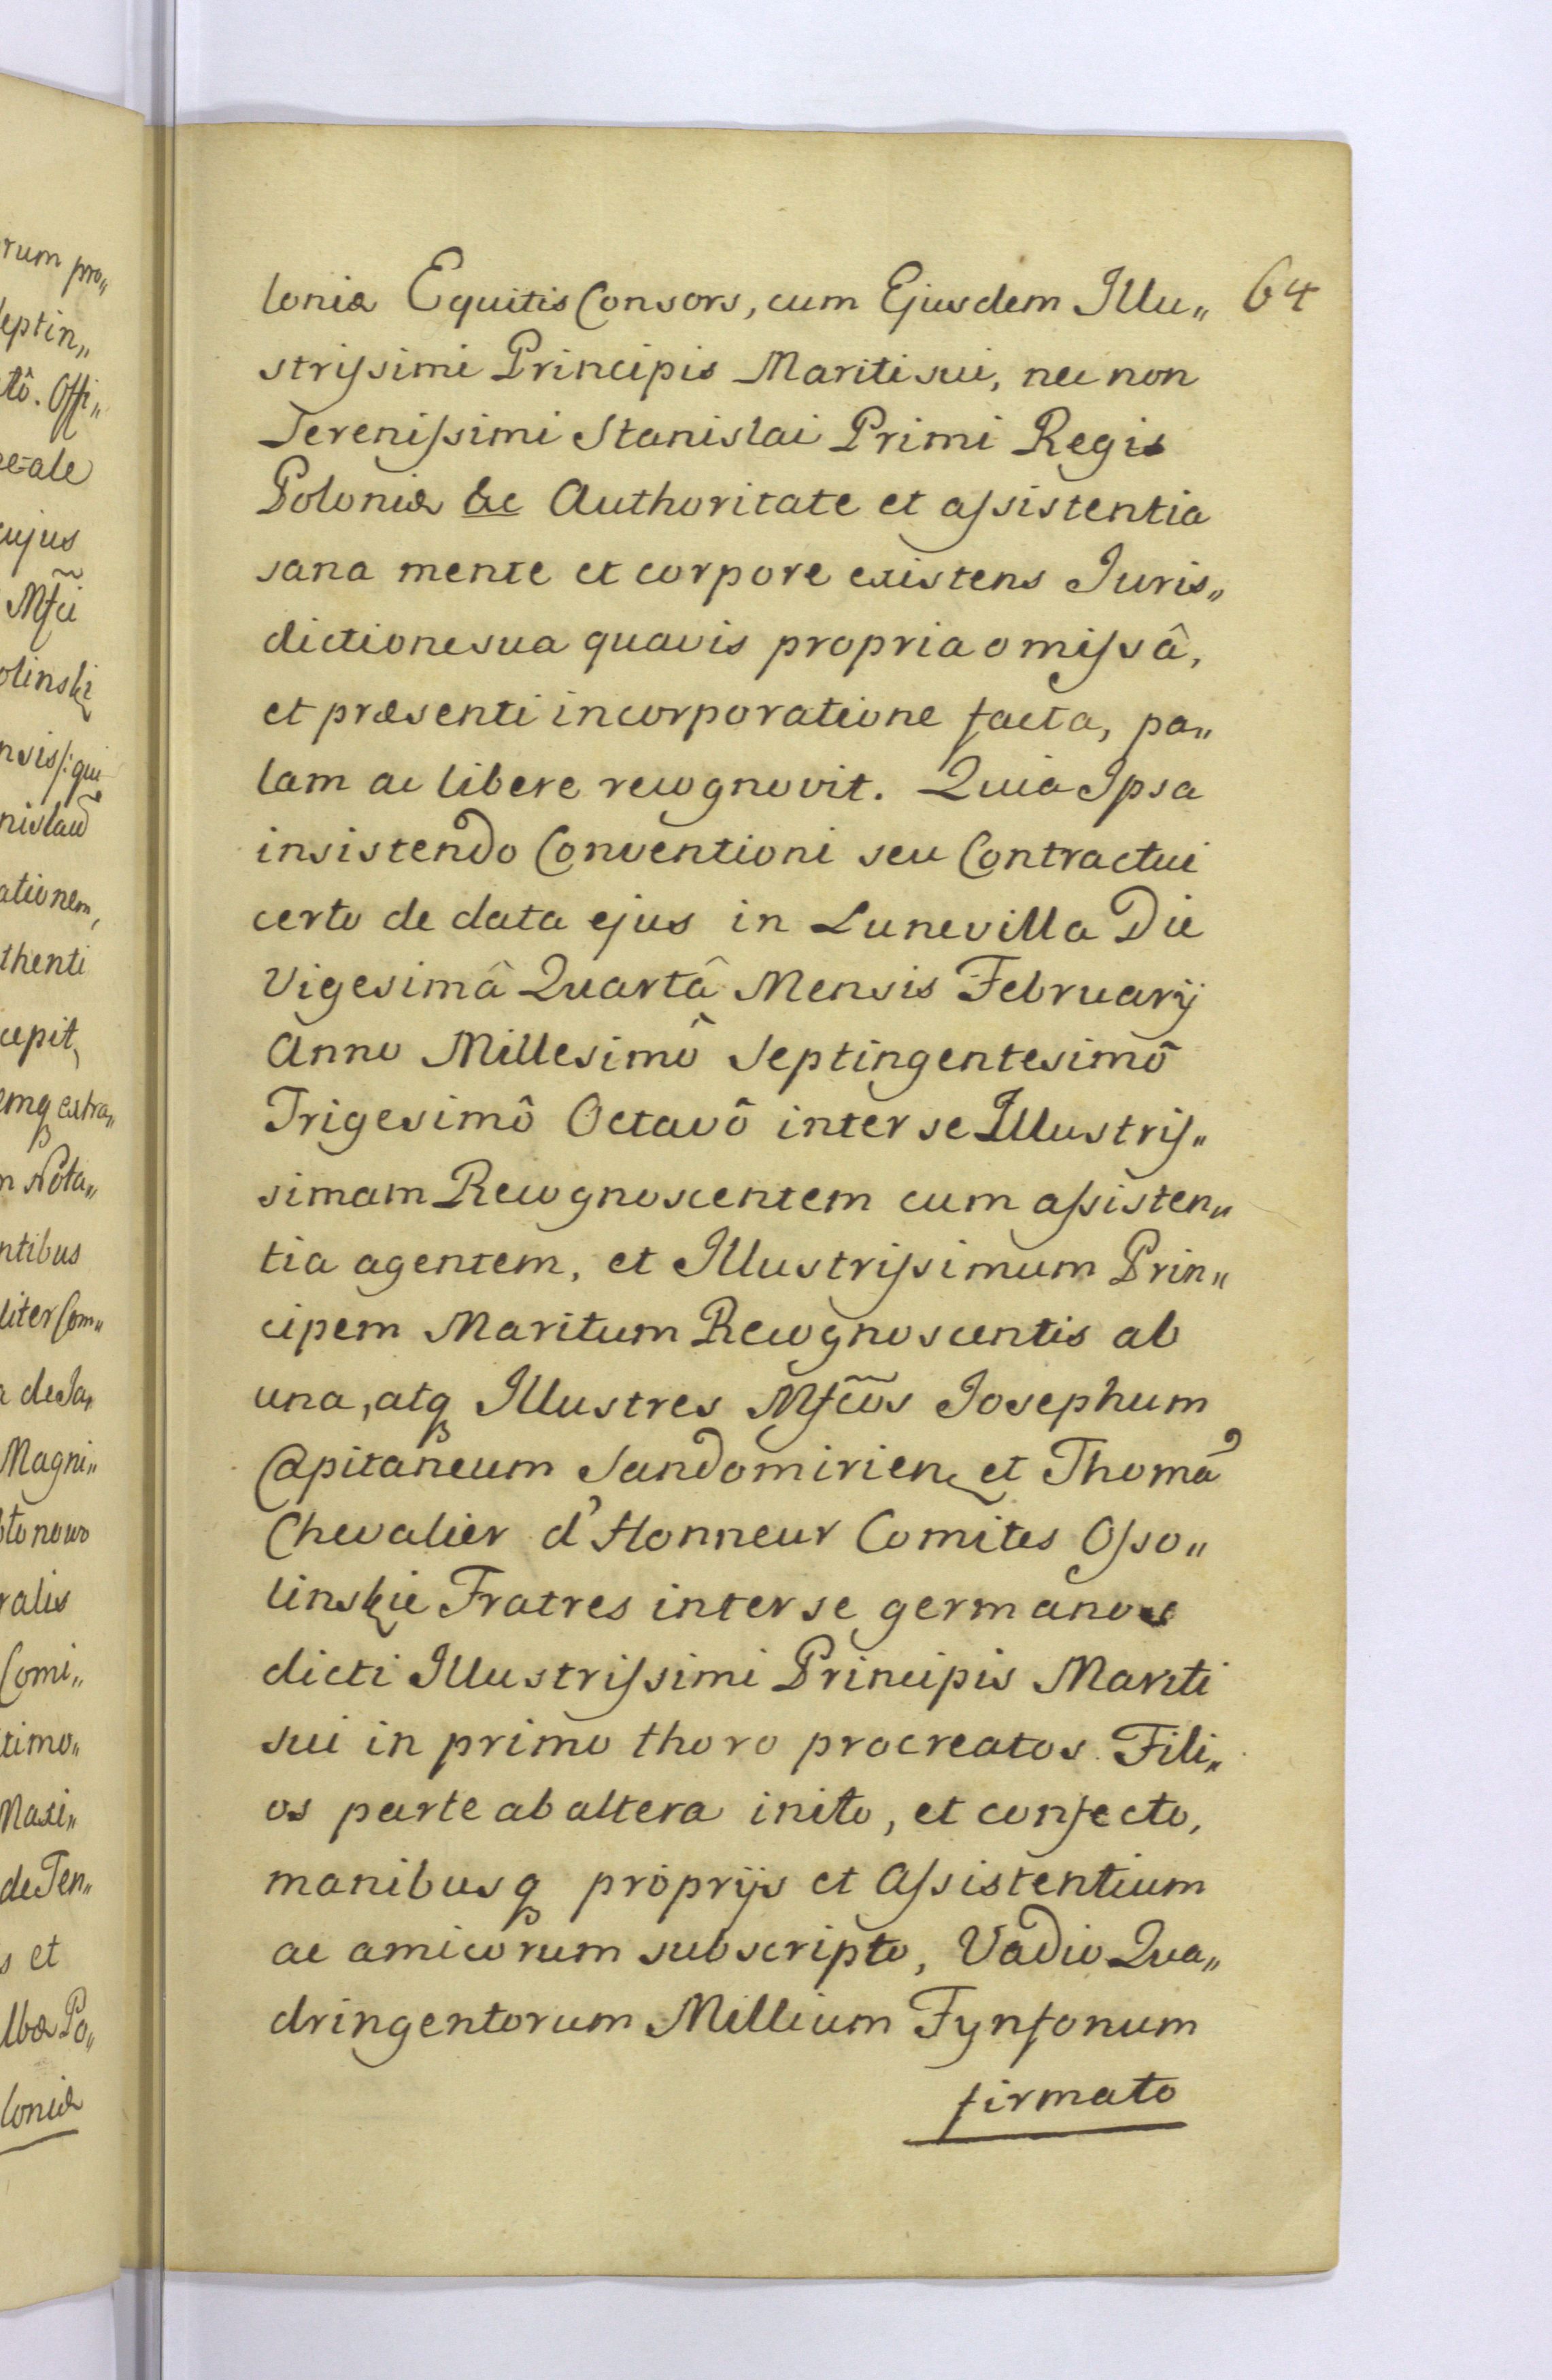 loniæ Equitis Consors, cum Ejusdem Illu„ 64
strissimi Principis Mariti sui, nec non
Serenissimi Stanislai Primi Regis
Poloniæ &c Authoritate et assistentia
sana mente et corpore existens Juris„
dictione sua quavis propria omissâ,
et præsenti incorporatione facta, pa„
lam ac libere recognovit. Quia Ipsa
insistendo Conventioni seu Contractui
certo de data ejus in Lunevilla Die
Vigesimâ Quartâ Mensis February
Anno Millesimô Septingentesimô
Trigesimô Octavô inter se Illustris„
simam Recognoscentem cum assisten„
tia agentem, et Illustrissimum Prin„
cipem Maritum Recognoscentis ab
una, atq Illustres Mfcos Josephum
Capitaneum Sandomirien et Thomã
Chevalier d'Honneur Comites Osso„
linskie Fratres inter se germanos
dicti Illustrissimi Principis Mariti
sui in primo thoro procreatos Fili„
os parte ab altera inito, et confecto,
manibusq proprijs et Assistentium
ac amicorum subscripto, Vadio Qua„
dringentorum Millium Tynfonum
firmato
rum pro„
septin„
tô. Offi„
ale
cujus
Mfci
olinski
nsis /: qui
nislaũ
ationem,
thenti
cepit,
emq extra„
m Nota„
ntibus
liter Com„
a de Ja„
Magni„
tonowo
ralis
Comi„
timo„
Maxi„
de Ten„
s et
lbæ Po„
loniæ